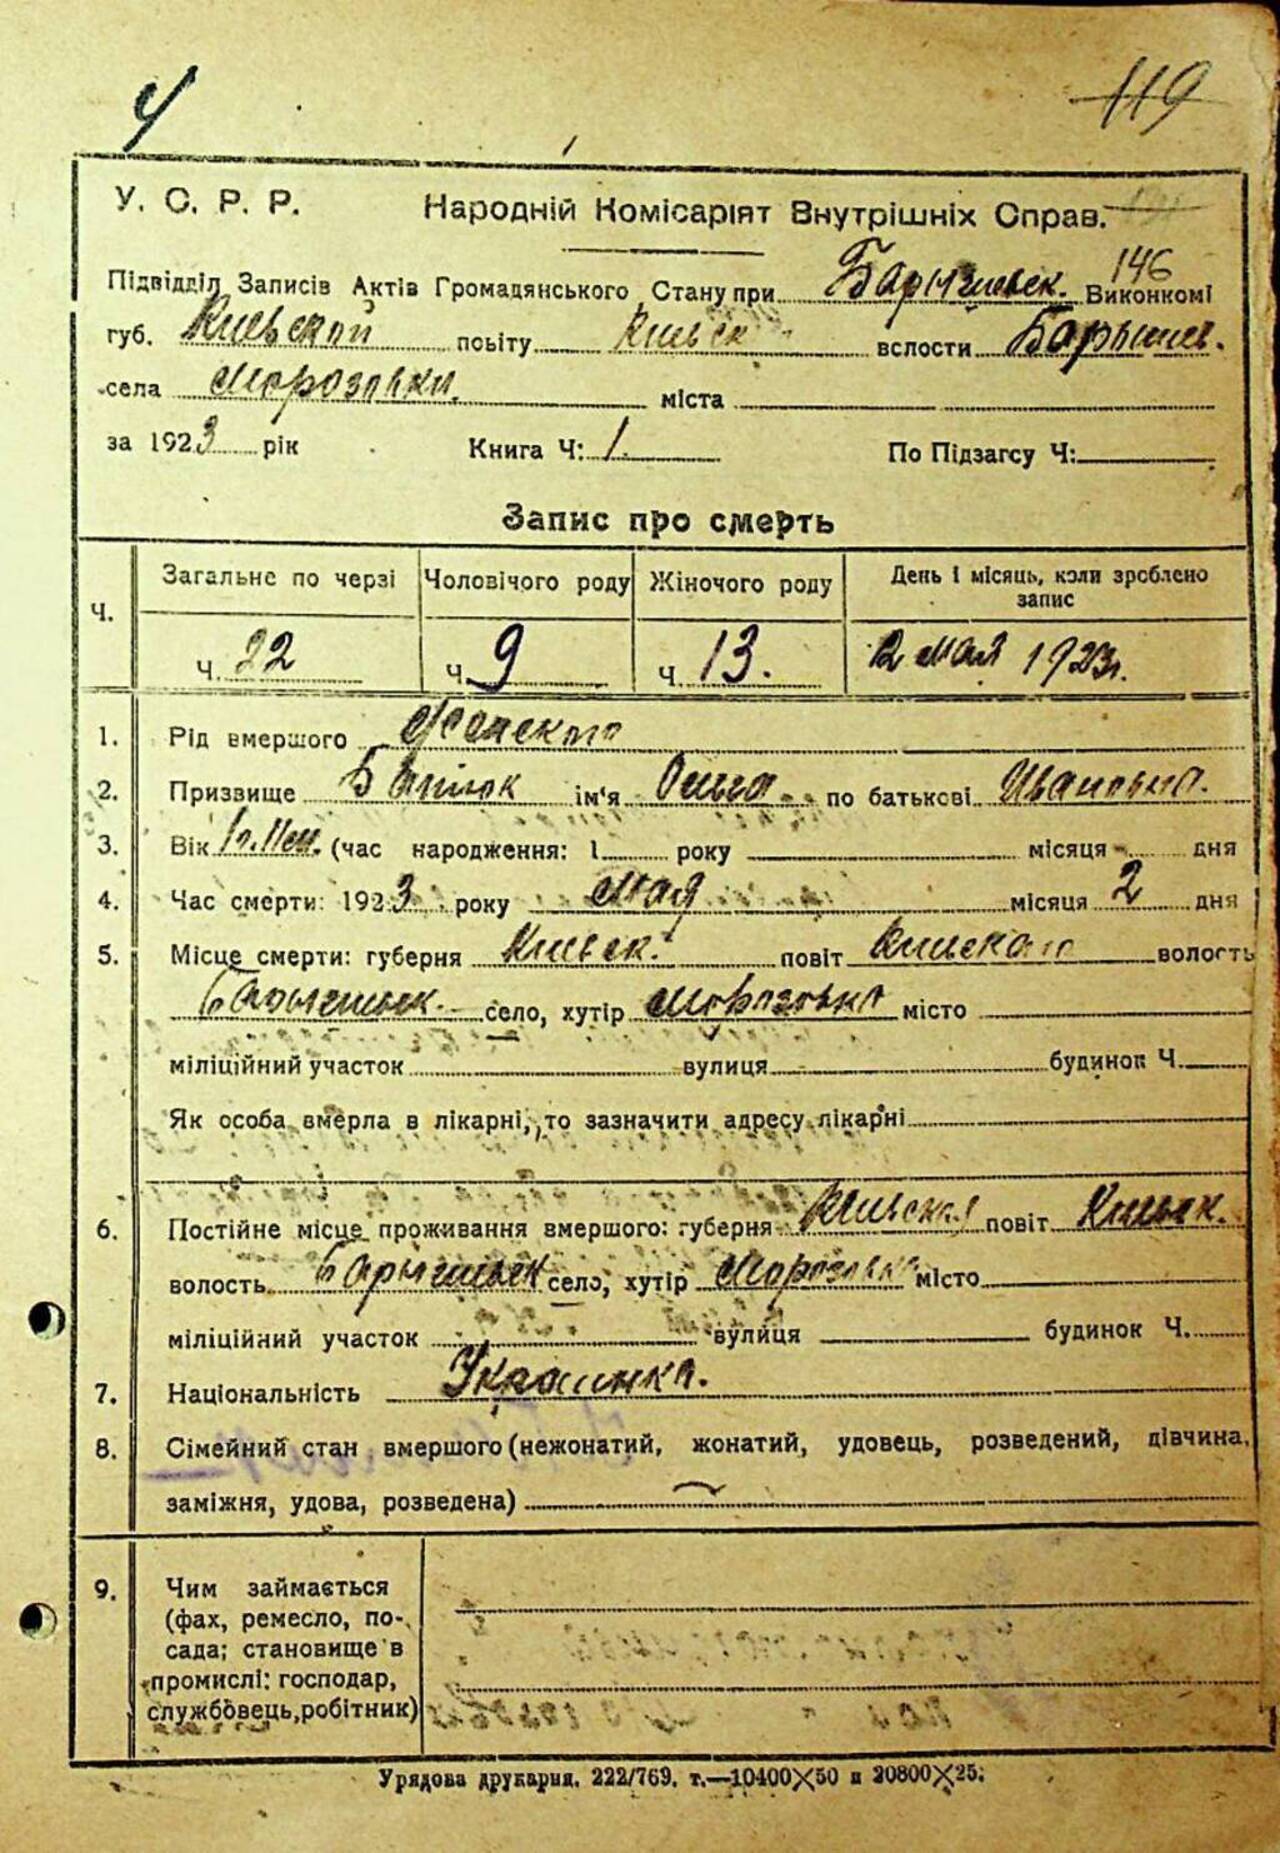 4
119
У. С. Р. Р. Народній Комісаріят Внутрішніх Справ.
146
Підвідділ Записів Актів Громадянського Стану при Барышевск. Виконкомі
губ. Киевской повіту Киевск вслости Барышев.
села Морозовки. міста
за 1923 рік Книга Ч: 1. По Підзагсу Ч:
Запис про смерть
Ч. Загальне по черзі Чоловічого роду Жіночого роду День і місяць, коли зроблено запис
ч. 22 ч. 9 ч. 13. 2 мая 1923г.
1. Рід вмершого Женского
2. Призвище ім'я Ольга по батькові Ивановна.
3. Вік (час народження: 1 року місяця дня
4. Час смерти: 1923 року Мая місяця 2 дня
5. Місце смерти: губерня Киевск. повіт Киевского волость
Барышевск. село, хутір Морозовка місто
міліційний участок вулиця будинок Ч.
Як особа вмерла в лікарні, то зазначити адресу лікарні
6. Постійне місце проживання вмершого: губерня Киевская повіт Киевск.
волость Барышевск село, хутір Морозовка місто
міліційний участок вулиця будинок Ч.
7. Національність Украинка.
8. Сімейний стан вмершого (нежонатий, жонатий, удовець, розведений, дівчина,
заміжня, удова, розведена)
9. Чим займається
(фах, ремесло, по-
сада; становище в
промислі: господар,
службовець, робітник)
Урядова друкарня. 222/769. т.—10400×50 и 20800×25.